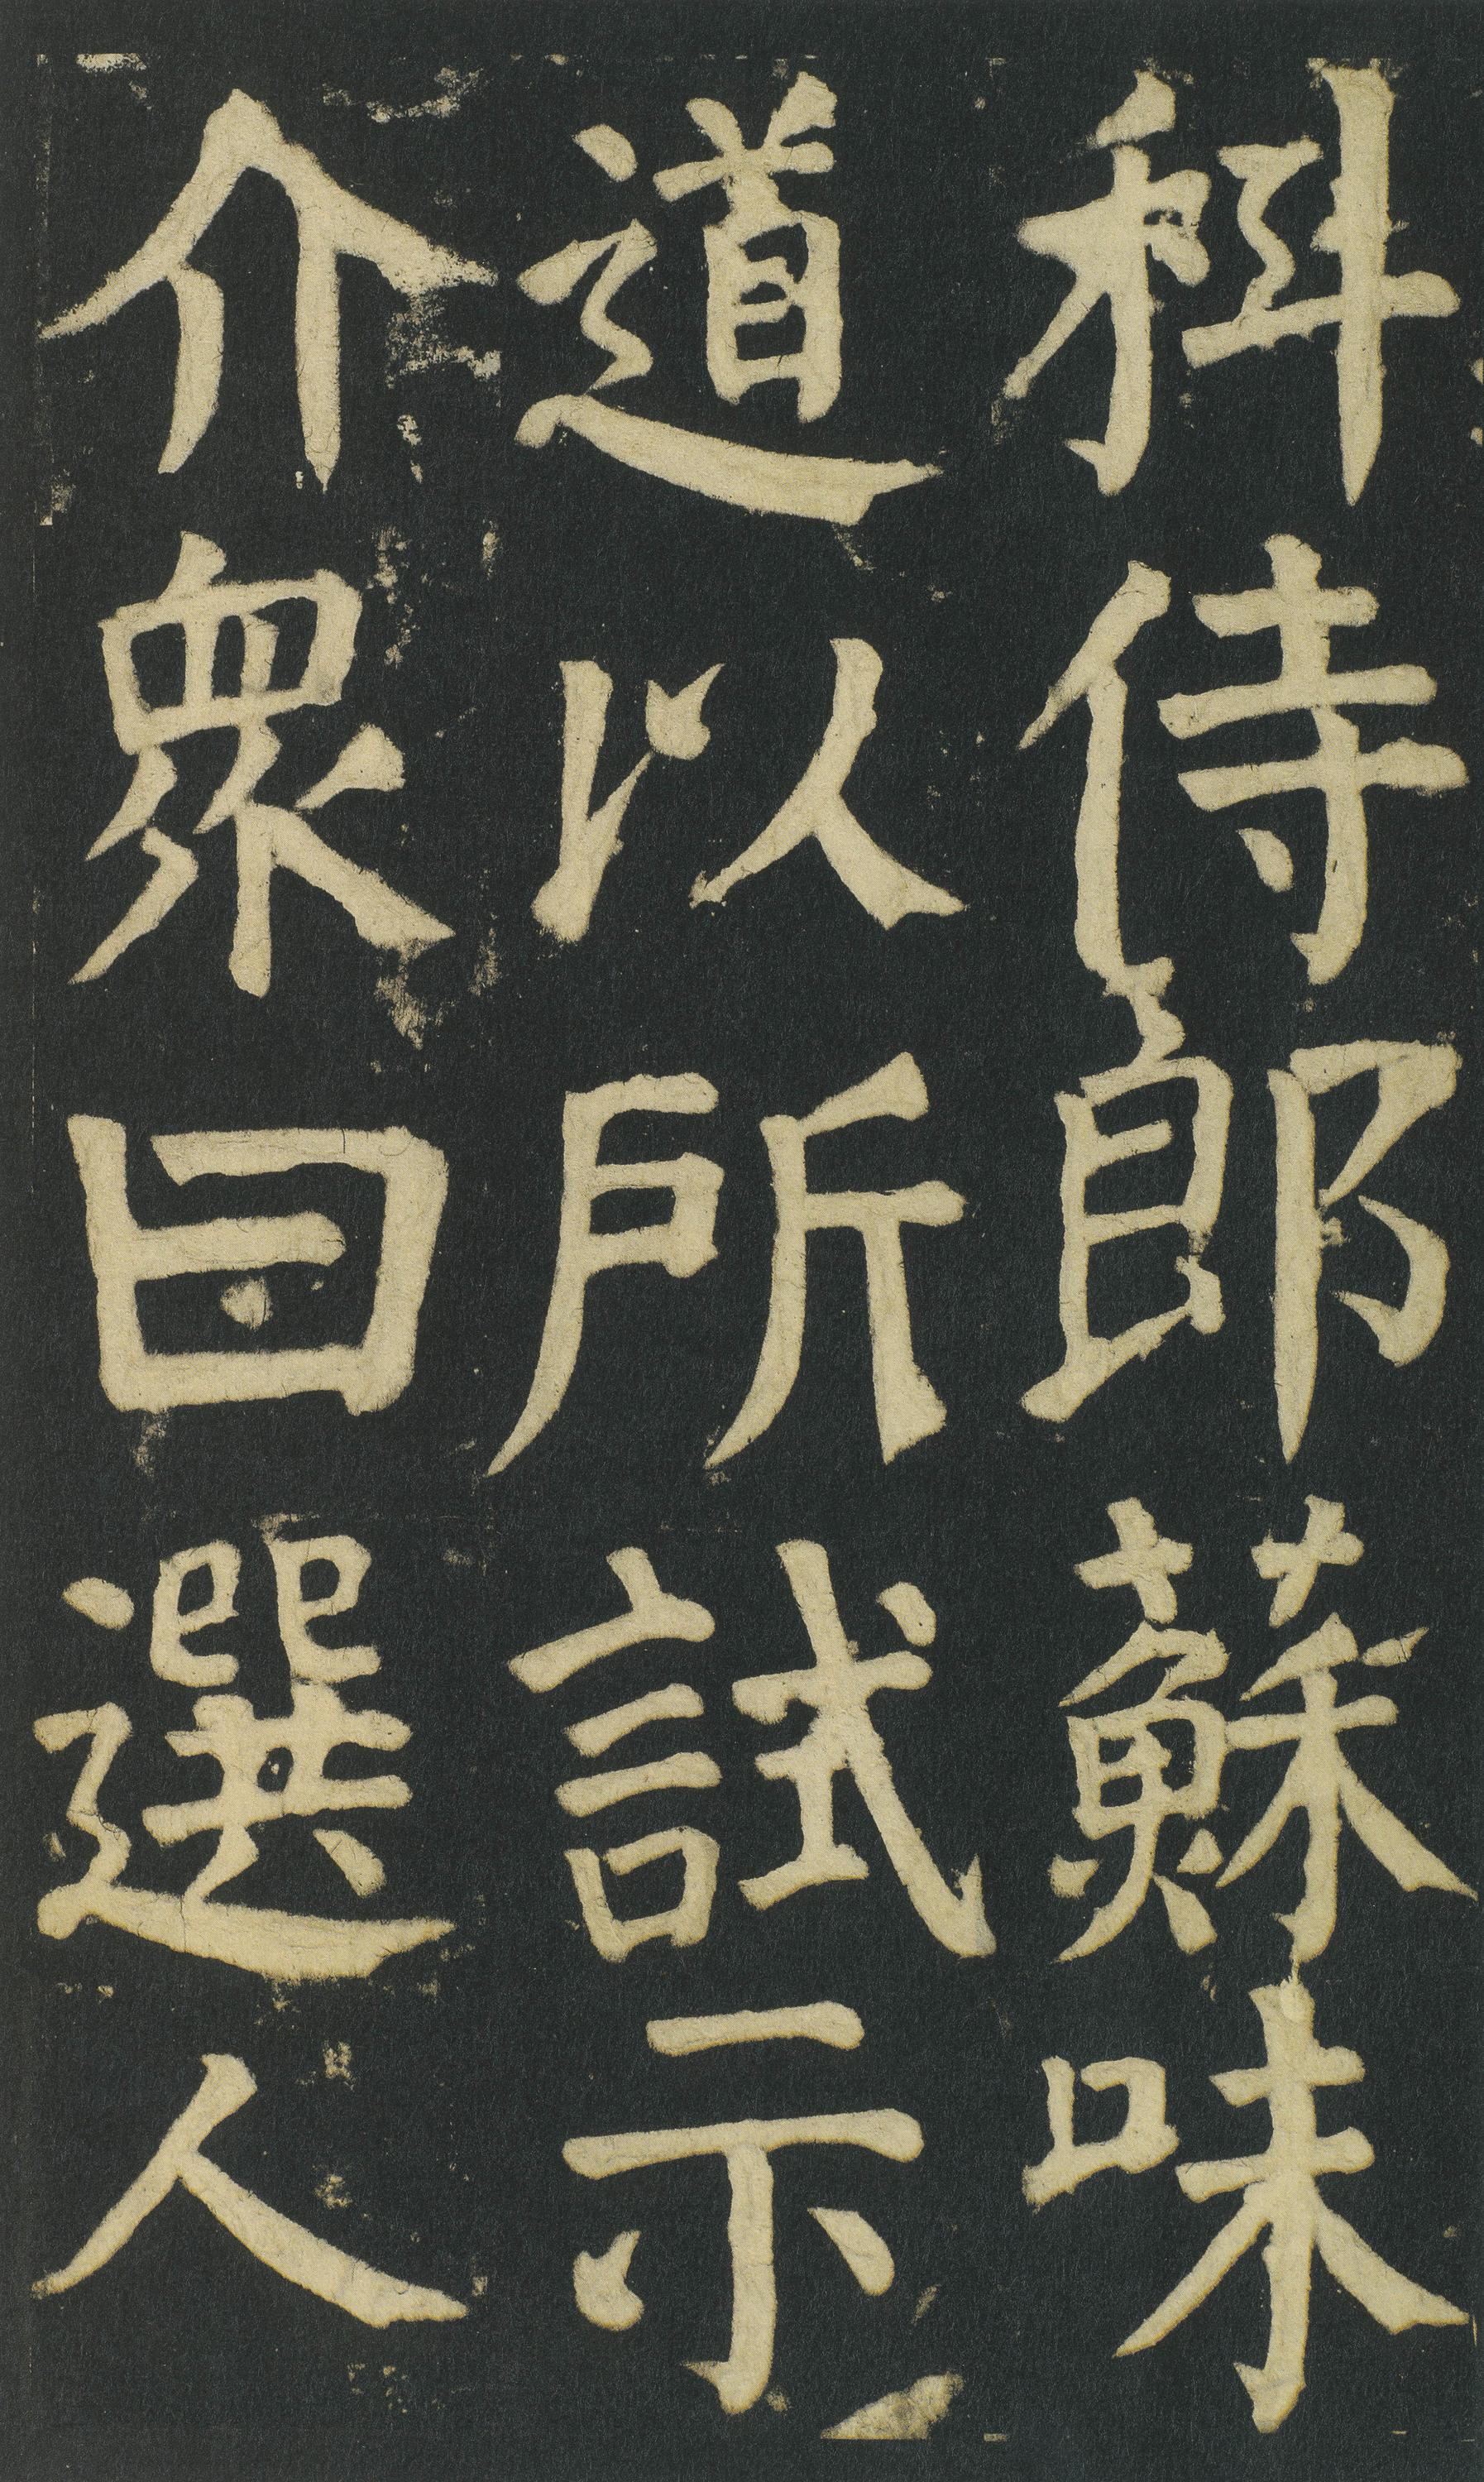 科侍郎蘇味
道以所試示
介衆曰選人